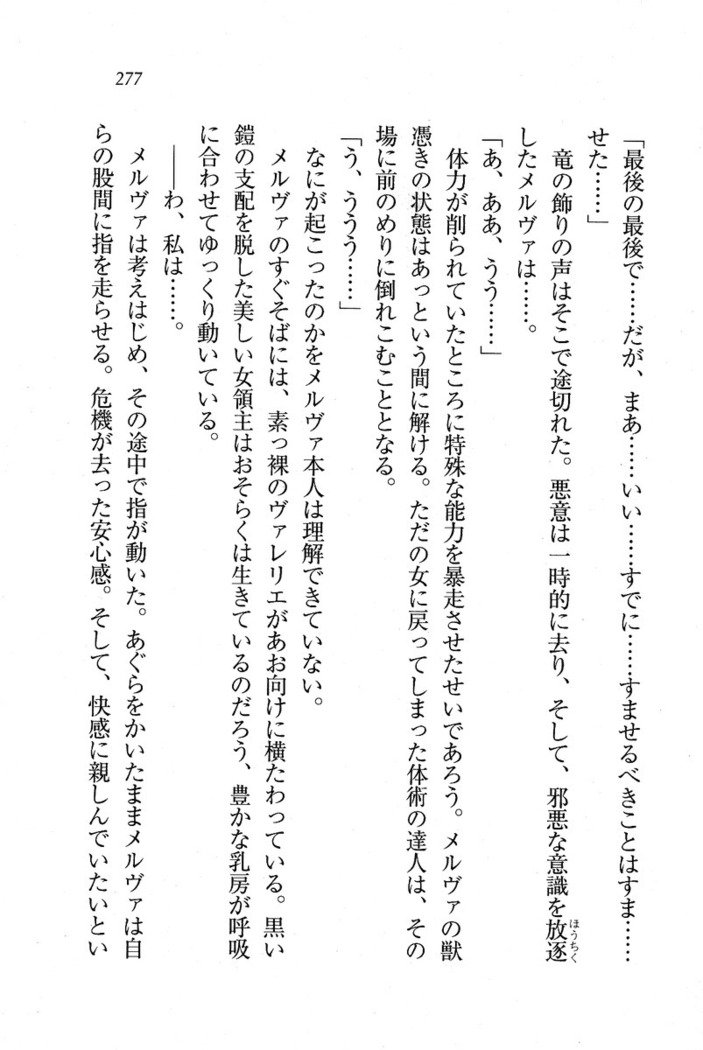 277
「最後の最後で……だが、まあ……いい……すでに……すませるべきことはすま……
せた……」
　竜の飾りの声はそこで途切れた。悪意は一時的に去り、そして、邪悪な意識を放逐
ほうちく
したメルヴァは……。
「あ、ああ、うう……」
　体力が削られていたところに特殊な能力を暴走させたせいであろう。メルヴァの獣
憑きの状態はあっという間に解ける。ただの女に戻ってしまった体術の達人は、その
場に前のめりに倒れこむこととなる。
「う、ううう……」
　なにが起こったのかをメルヴァ本人は理解できていない。
　メルヴァのすぐそばには、素っ裸のヴァレリエがあお向けに横たわっている。黒い
鎧の支配を脱した美しい女領主はおそらくは生きているのだろう、豊かな乳房が呼吸
に合わせてゆっくり動いている。
　――わ、私は……。
　メルヴァは考えはじめ、その途中で指が動いた。あぐらをかいたままメルヴァは自
らの股間に指を走らせる。危機が去った安心感。そして、快感に親しんでいたいとい